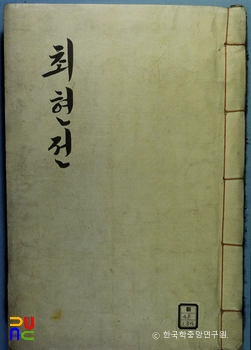 최현전
ⓒ 한국학중앙연구원